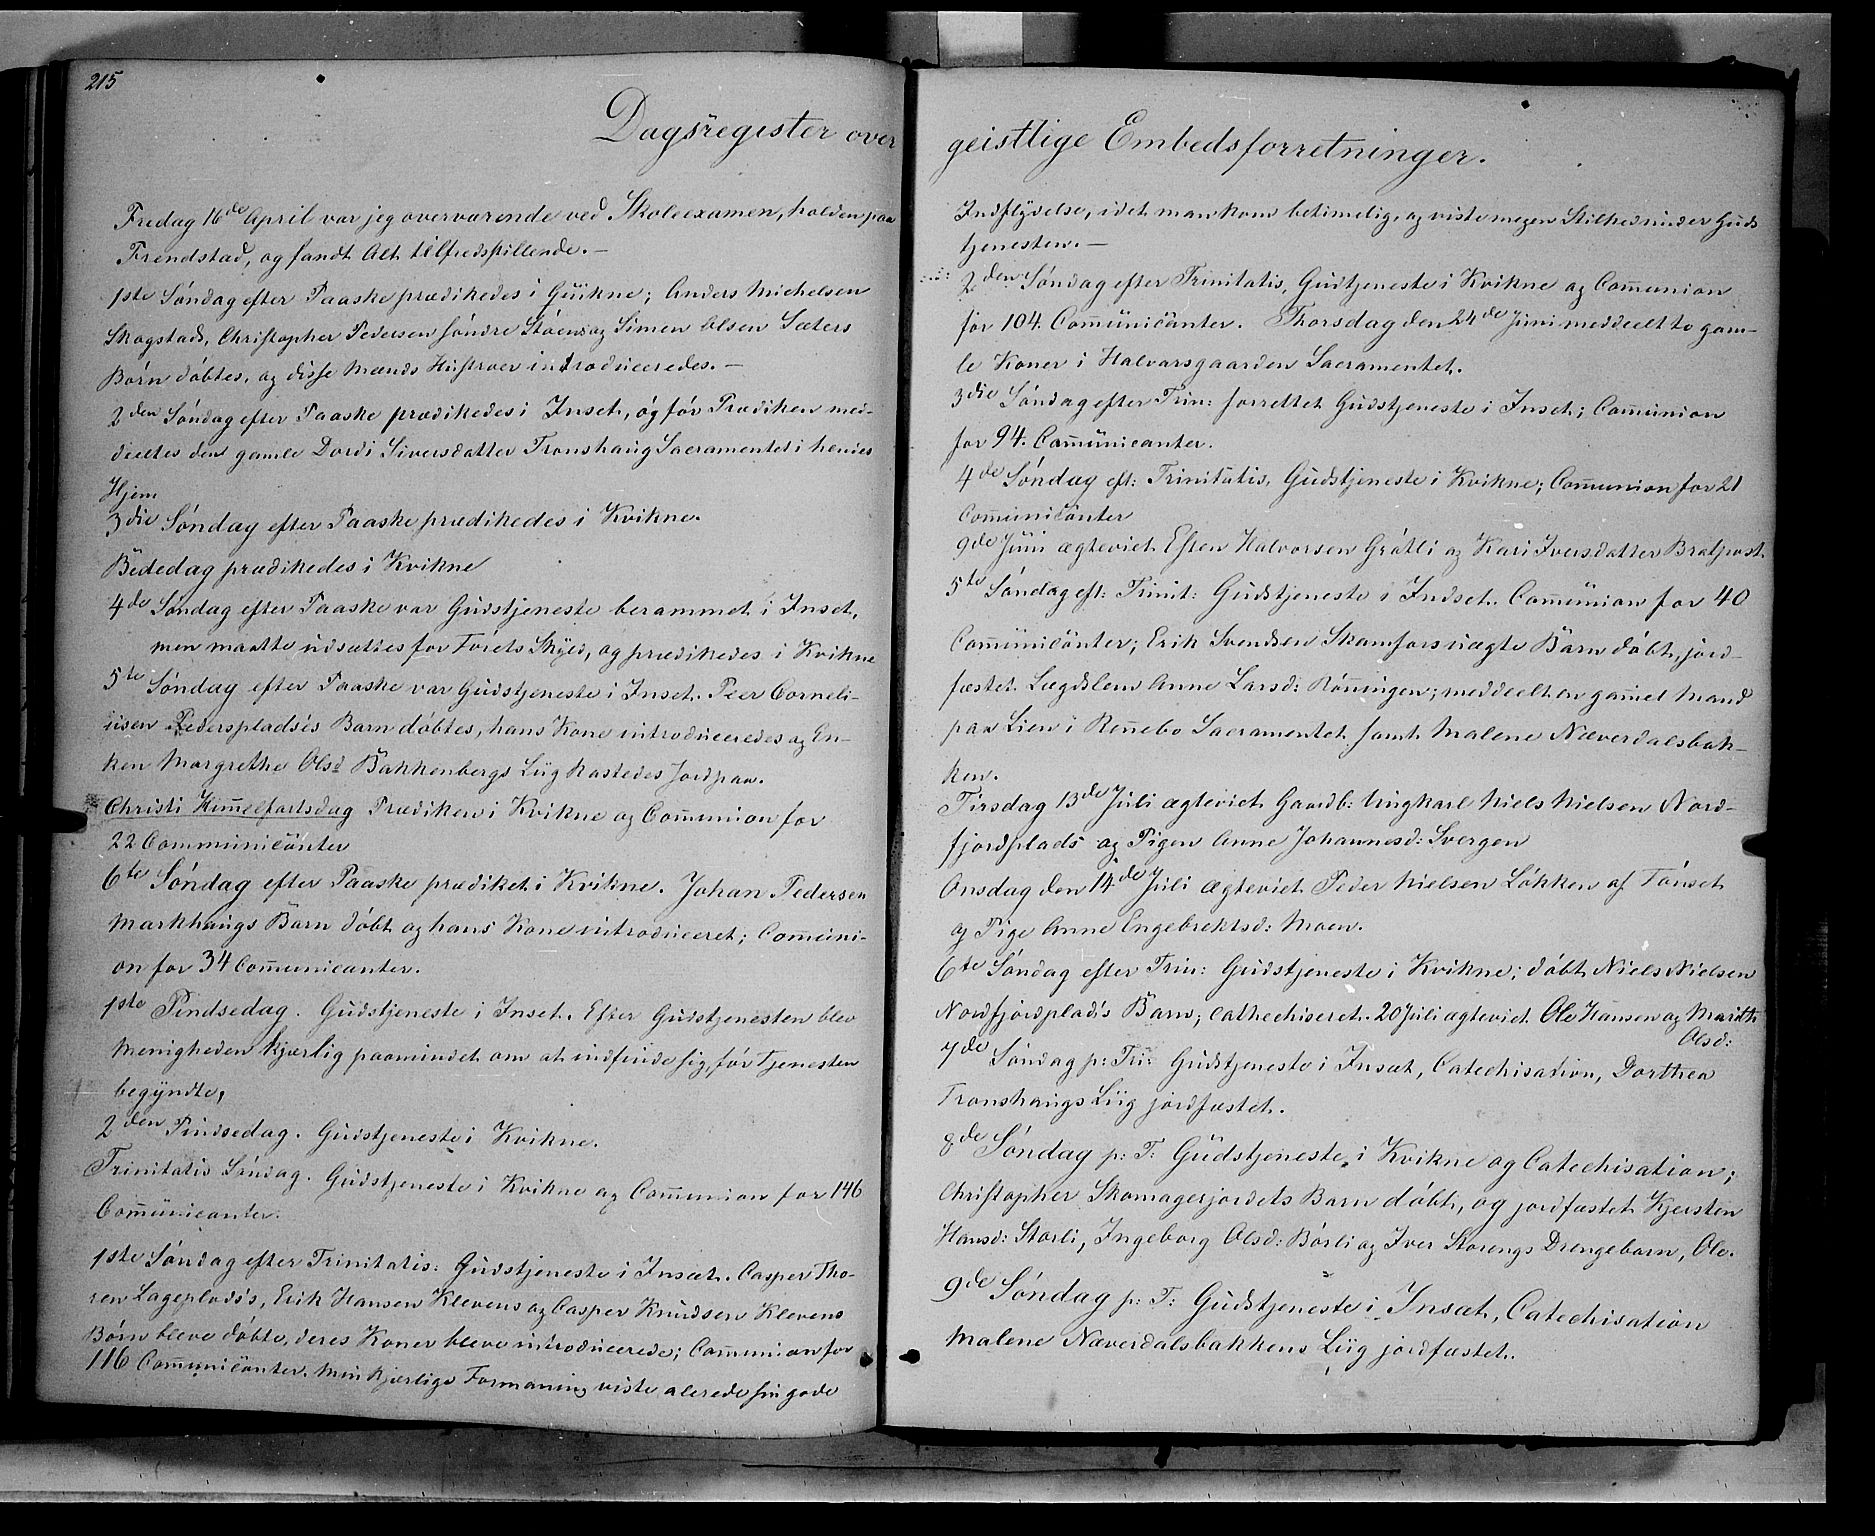 215
Dagsregister over
Fredag 16de April var jeg overværende ved Skoleexamen, holden paa
Frendstad, og fandt Alt tilfredsstillende.—
1ste Søndag efter Paaske prædikedes i Quikne; Anders Michelsen
Skogstads, Christopher Pedersen søndre Støens og Simen Olsen Sæters
Børn døbtes, og disse Mænds Hustroer introduceredes.—
2den Søndag efter Paaske prædikedes i Inset, og før Prædiken med-
deeltes den gamle Dordi Siversdatter Tronshaug Sacramentet i hendes
Hjem
3die Søndag efter Paaske prædikedes i Kvikne.
Bededag prædikedes i Kvikne
4de Søndag efter Paaske var Gudstjeneste berammet i Inset,
men maatte udsættes for Førets Skyld, og prædikedes i Kvikne
5te Søndag efter Paaske var Gudstjeneste i Inset. Peer Corneli-
usen Pederspladses Barn døbtes, hans Kone introduceredes og En-
ken Margrethe Olsd Bakkenbergs Liig kastedes Jord paa.
Christi Himmelfartsdag Prædiken i Kvikne og Communion for
22 Communicanter
6te Søndag efter Paaske prædiket i Kvikne. Johan Pedersen
Markhaugs Barn døbt og hans Kone introduceret; Communi-
on for 34 Communicanter.
1ste Pindsedag. Gudstjeneste i Inset. Efter Gudstjenesten blev
Menigheden kjærlig paamindet om at indfinde sig, før Tjenesten
begyndte,
2den Pindsedag. Gudstjeneste i Kvikne.
Trinitatis Søndag. Gudstjeneste i Kvikne og Communion for 146
Communicanter.
1ste Søndag efter Trinitatis: Gudstjeneste i Insæt. Casper Tho-
resen Lageplads's, Erik Hansen Klevens og Casper Knudsen Klevens
Børn bleve døbte, deres Koner bleve introducerede; Communion for
116 Communicanter. Min kjærlige Formaning viste allerede sin gode
geistlige Embedsforretninger.
Indflydelse, idet man kom betimelig, og viste megen Stilhed under Guds
tjenesten.—
2den Søndag efter Trinitatis, Gudtjeneste i Kvikne og Communion
for 104. Communicanter. Thorsdag den 24de Juni meddeelt to gam-
le Koner i Halvarsgaarden Sacramentet.
3die Søndag efter Trin: forrettet Gudstjeneste i Inset; Communion
for 94. Communicanter.
4de Søndag eft: Trinitatis, Gudstjeneste i Kvikne; Communion for 21
Communicanter
9de Juli ægteviet Esten Halvorsen Gråtli og Kari Iversdatter
5te Søndag eft: Trinit: Gudstjeneste i Indset. Communion for 40
Communicanter; Erik Svendsen Skamfers uægte Barn døbt, jord-
fæstet Lægdslem Anne Larsd: Rønningen; meddeelt en gammel Mand
paa Lien i Rennebo Sacramentet samt Malene Næverdalsbak-
ken.
Tirsdag 13de Juli ægteviet Gaardb: Ungkarl Niels Nielsen Nord-
fjordplads og Pigen Anne Johannesd: Svergen
Onsdag den 14de Juli ægteviet Peder Nielsen Løkken af Tønset
og Pige Anne Engebrektsd: Moen.
6te Søndag efter Trin: Gudstjeneste i Kvikne; døbt Niels Nielsen
Nordfjordplads's Barn; cathechiseret. 20 Juli ægteviet Ole Hansen og Marith
Olsd:
7de Søndag p: Tri: Gudstjeneste i Insæt, Catechisation, Dorthea
Tronshaugs Liig jordfæstet.
8de Søndag p: T: Gudstjeneste i Kvikne og Catechisation;
Christopher Skomagerjordets Barn døbt, og jordfæstet Kjersten
Hansd: Storli, Ingeborg Olsd: Børli og Iver Storengs Drengebarn, Ole.
9de Søndag p: T: Gudstjeneste i Insæt, Catechisation
Malene Næverdalsbakkens Liig jordfæstet.